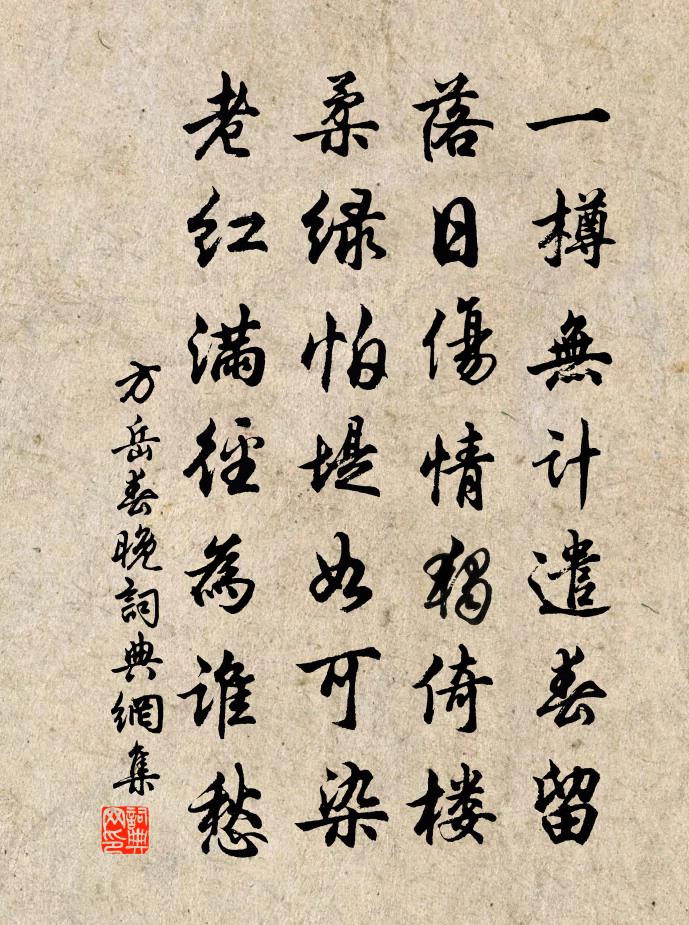 一樽無計遣春留
落日傷情獨倚楼
柔绿怕堤如可染
老红滿徑為誰愁
方岳春晚詞典網集
詞典網印